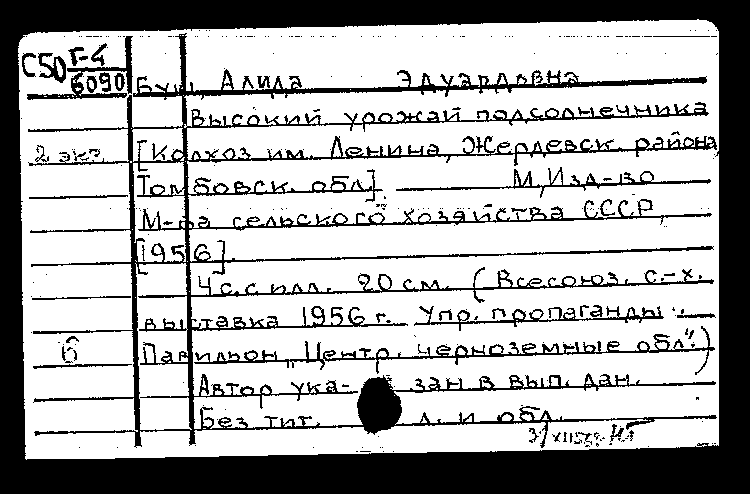 С50 Г-4
6090
Буш, Алида Эдуардовна
Высокий урожай подсолнечника
2 экз. [Колхоз им. Ленина, Жердевск. района,
Томбовск. обл.] М, Изд-во
М-ва сельского хозяйства СССР,
[1956].
4 с. с илл. 20 см. (Всесоюз. с.-х.
выставка 1956 г. Упр. пропаганды.
б Павильон „Центр. черноземные обл.".)
Автор ука- зан в вып. дан.
Без тит. л. и обл.